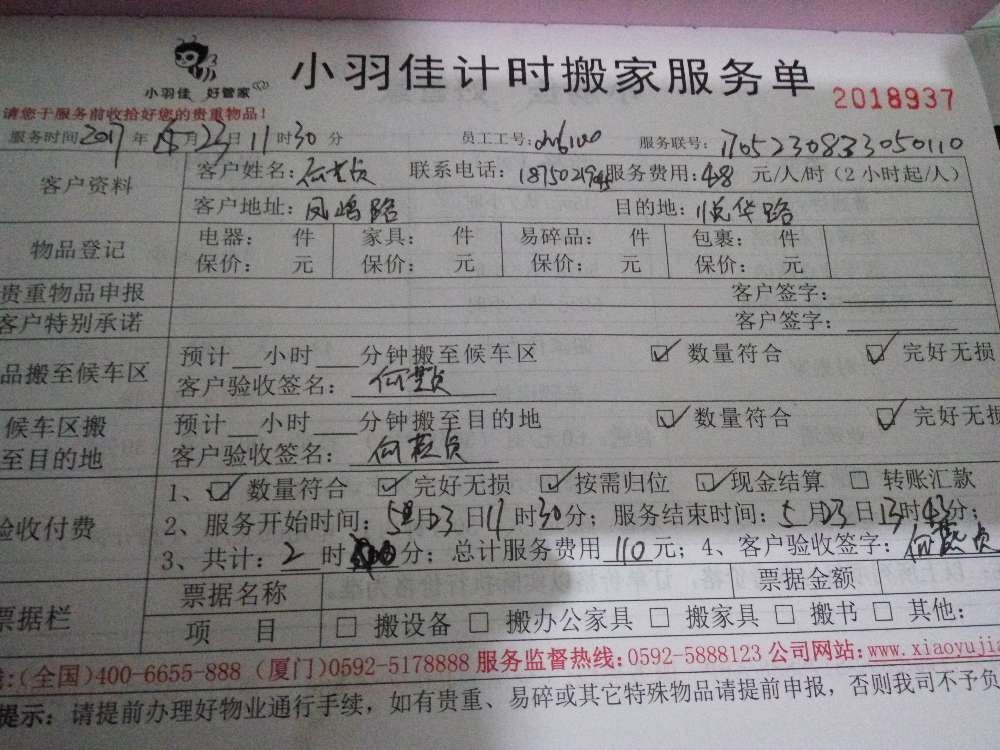 小羽佳计时搬家服务单
小羽佳 好管家
2018937
请您于服务前收拾好您的贵重物品！
服务时间2017年5月23日11时30分 员工工号： 服务联号：1705230833050110
客户资料 客户姓名： 联系电话： 服务费用：48元/人/时（2小时起/人）
客户地址：凤屿路 目的地：悦华路
物品登记 电器： 件 家具： 件 易碎品： 件 包裹： 件
保价： 元 保价： 元 保价： 元 保价： 元
贵重物品申报 客户签字：
客户特别承诺 客户签字：
品搬至候车区 预计 小时 分钟搬至候车区 ☑ 数量符合 ☑ 完好无损
客户验收签名：
候车区搬至目的地 预计 小时 分钟搬至目的地 ☑ 数量符合 ☑ 完好无损
客户验收签名：
验收付费 1、☑ 数量符合 ☑ 完好无损 ☑ 按需归位 ☑ 现金结算 □ 转账汇款
2、服务开始时间：5月23日11时30分；服务结束时间：5月23日13时43分；
3、共计：2时 分；总计服务费用110元；4、客户验收签字：
票据栏 票据名称 票据金额
项 目 □ 搬设备 □ 搬办公家具 □ 搬家具 □ 搬书 □ 其他：
：(全国)400-6655-888（厦门)0592-5178888 服务监督热线：0592-5888123 公司网站：www.xiaoyujia
提示：请提前办理好物业通行手续，如有贵重、易碎或其它特殊物品请提前申报，否则我司不予负